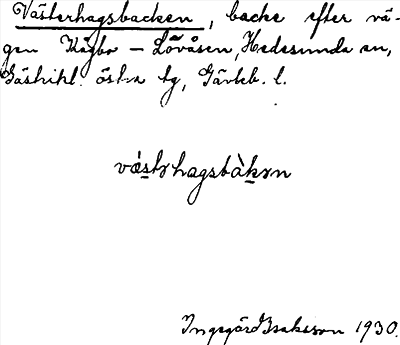 Västerhagsbacken, backe efter vä-
gen Kågbo – Lövåsen, Hedesunda sn,
Gästrikl. östra tg, Gävleb. l.
Ingegärd Isaksson 1930.